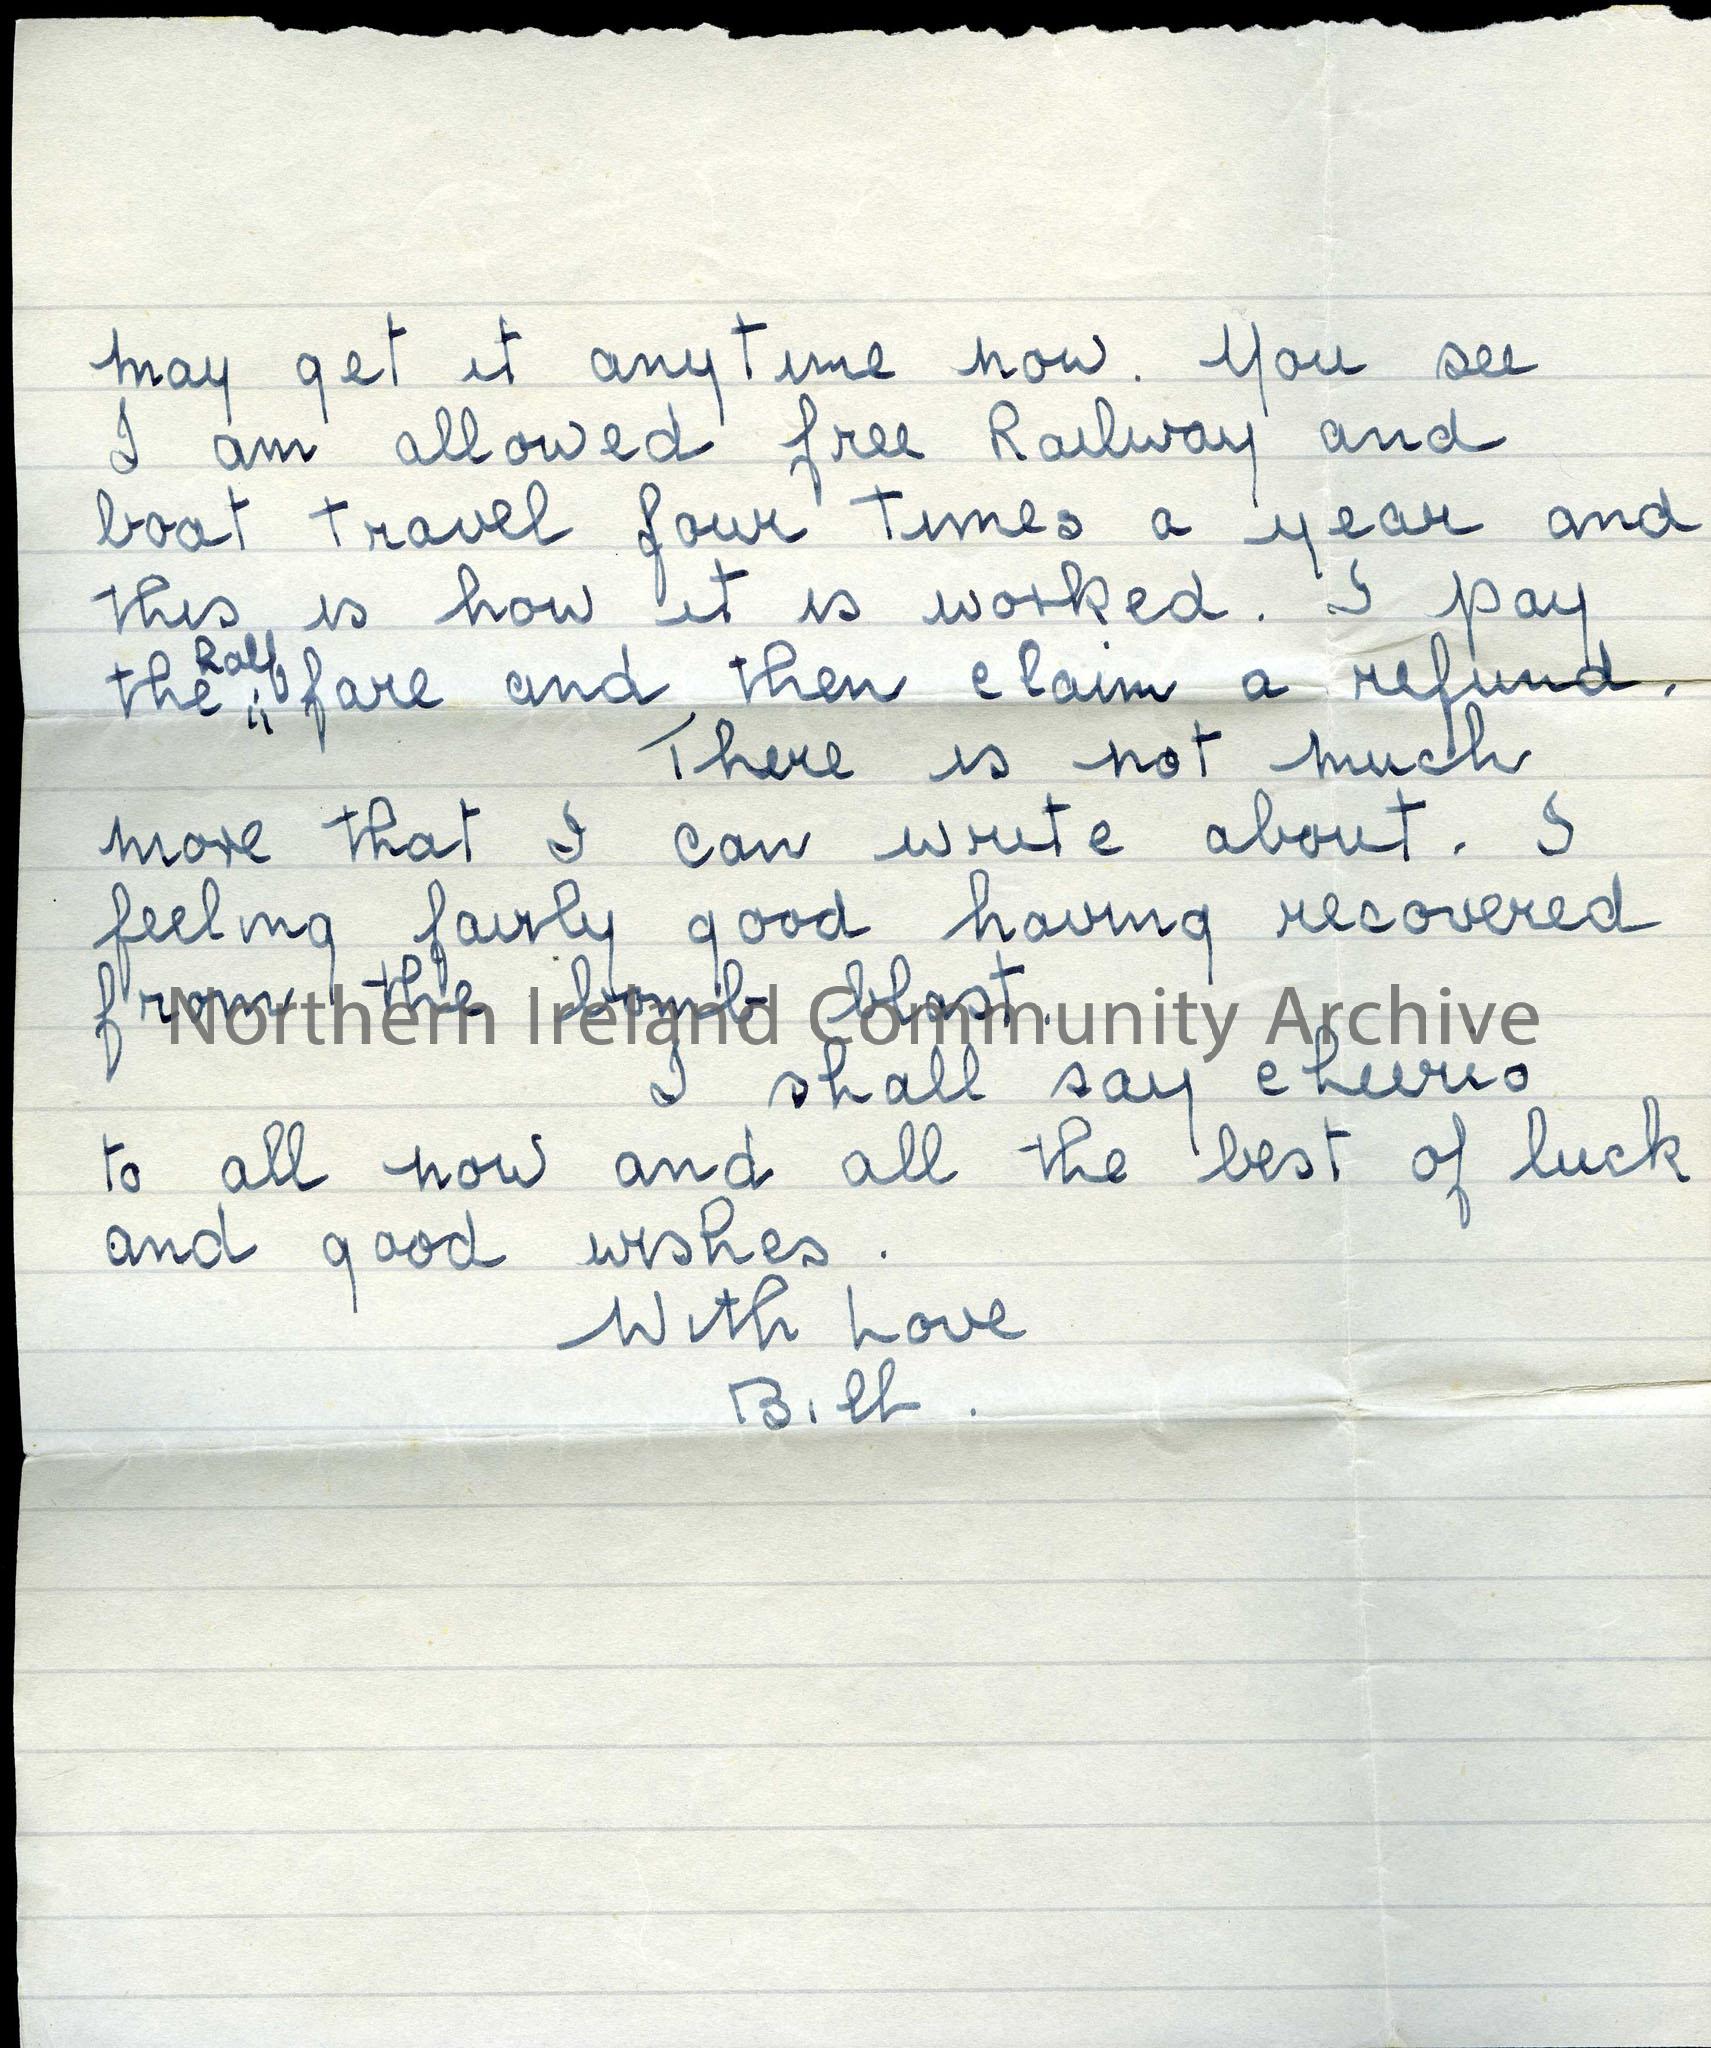 may get it anytime now. You see
I am allowed free Railway and
boat travel four times a year and
this is how it is worked. I pay
Half
the fare and then claim a refund.
There is not much
more that I can write about. I
feeling fairly good having recovered
from the bomb blast.
Northern Ireland Community Archive
I shall say cheerio
to all now and all the best of luck
and good wishes.
With Love
Bill.